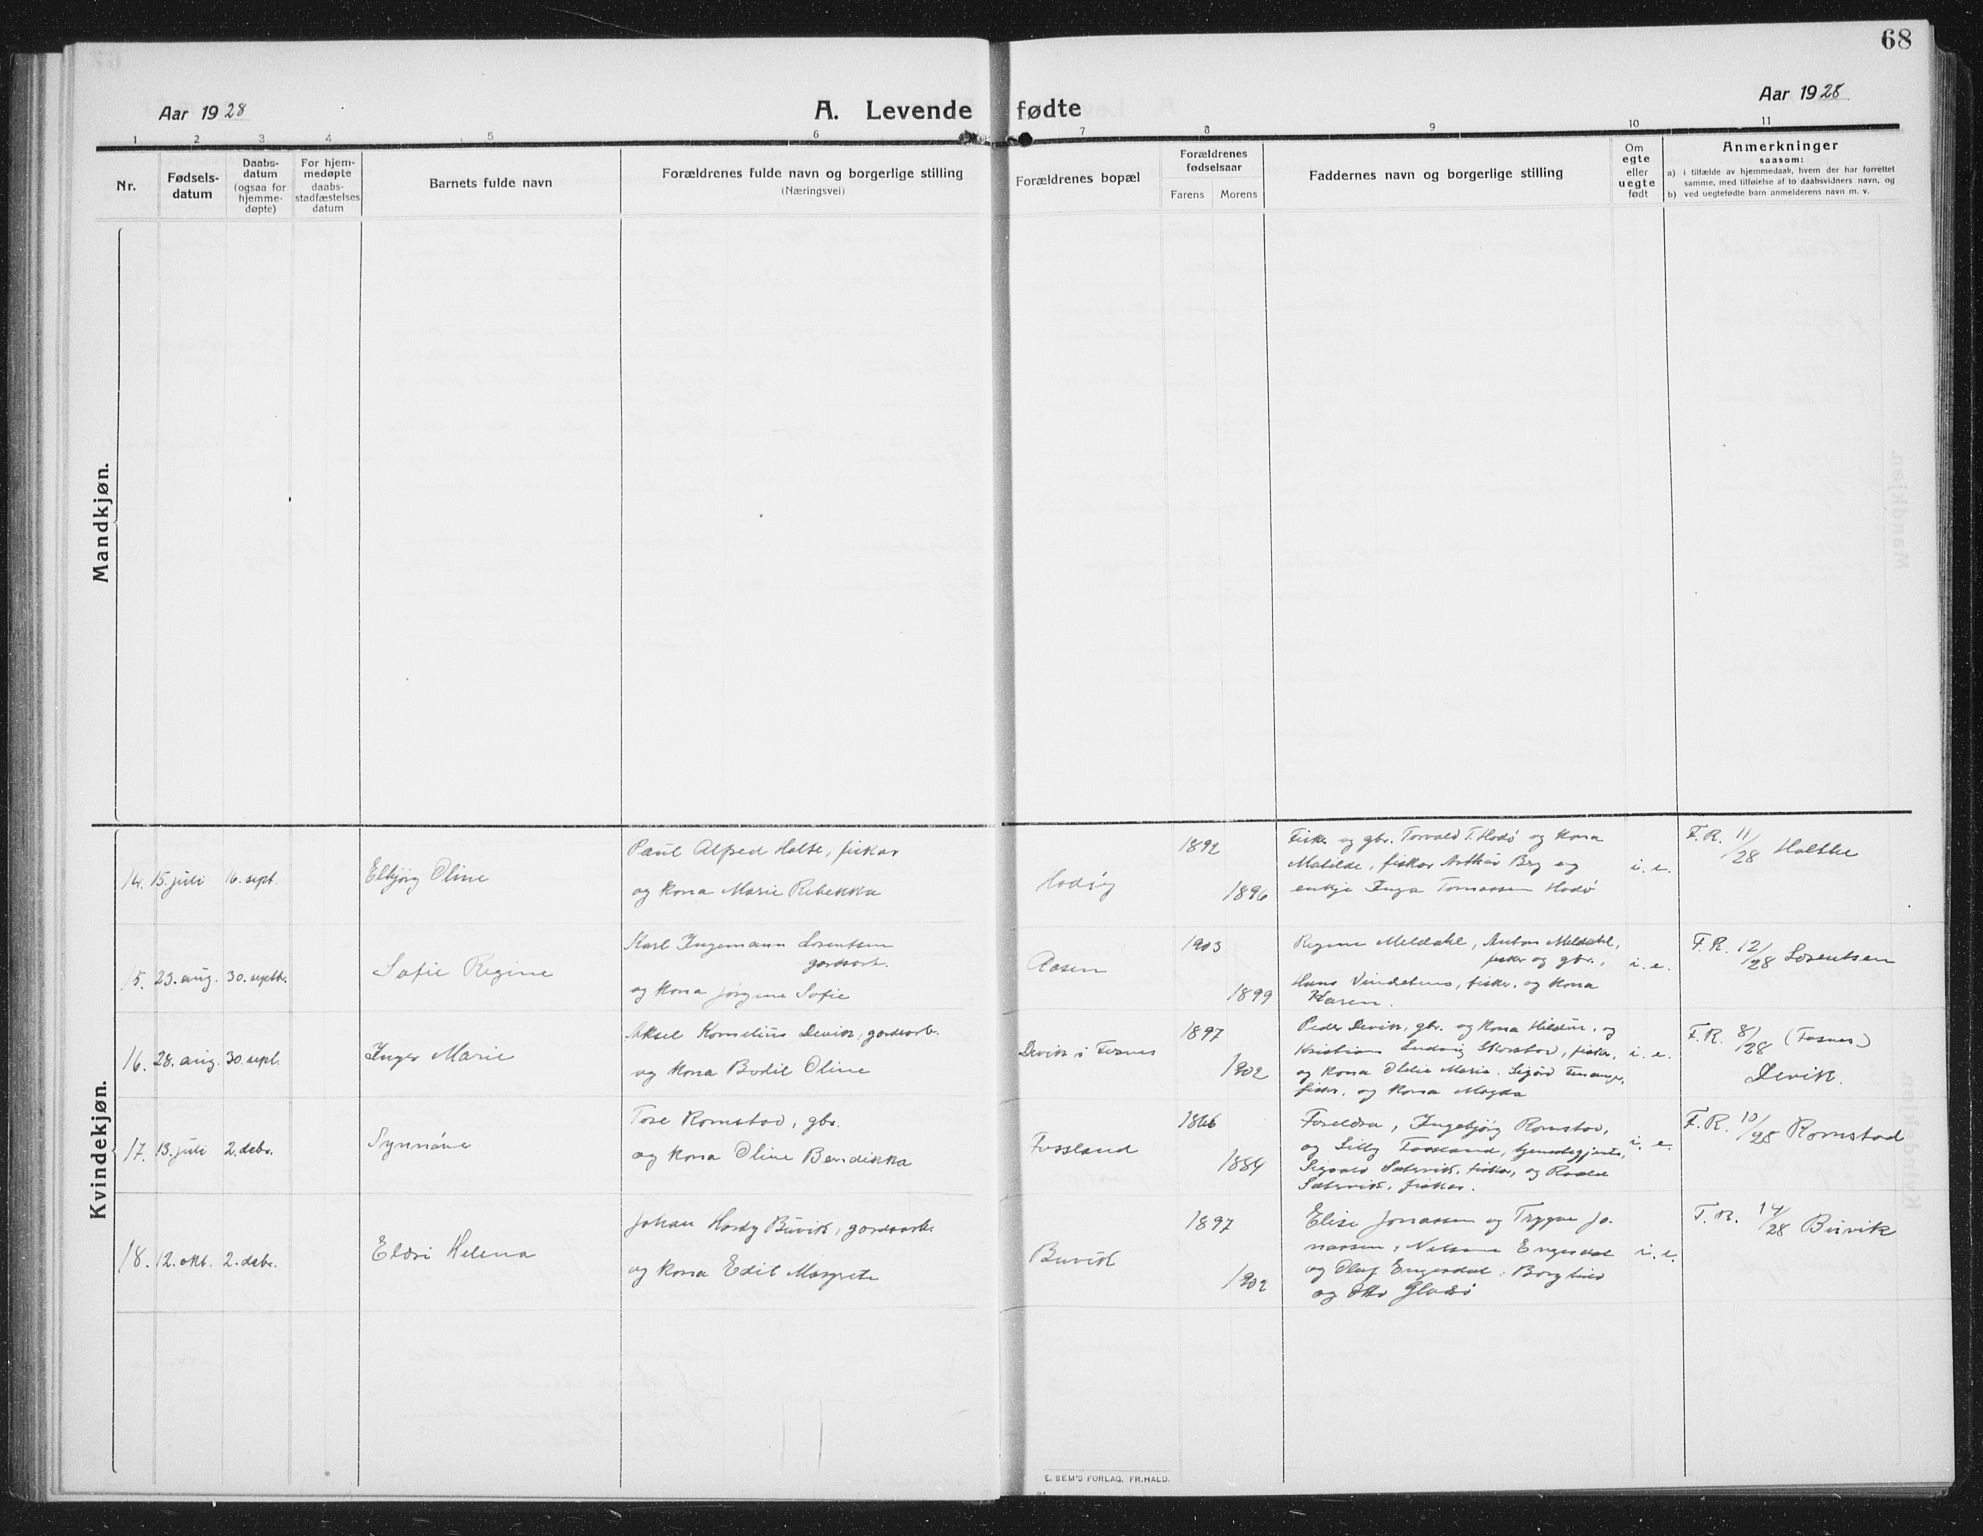 68
Aar 1928
A. Levende fødte
Aar 1928
1 2 3 4 5 6 7 8 9 10 11
Nr.
Fødselsdatum
Daabsdatum (ogsaa for hjemmedøpte)
For hjemmedøpte daabsstadfæstelses datum
Barnets fulde navn
Forældrenes fulde navn og borgerlige stilling
(Næringsvei)
Forældrenes bopæl
Forældrenes fødselsaar
Farens Morens
Faddernes navn og borgerlige stilling
Om egte eller uegte født
Anmerkninger
saasom:
a) i tilfælde av hjemmedaab, hvem der har forrettet
samme, med tilføielse af to daabsvidners navn, og
b) ved uegtefødte barn anmelderens navn m. v.
Mandkjøn.
Kvindekjøn.
14. 15. juli 16. sept. Elbjörg Oline
Paul Alfred Holte, fiskar
og kona Marie Rebekka
Hodöy
1892
1896
Fisker og gbr. Torvald T. Hodö og kona
Matilde, fiskar Arthur Brg og
enkje Inga Tomassen Hodö
i. e.
F.R. 11/28 Holthe
15. 23. aug. 30. septbr. Sofie Regine
Karl Ingemann Lorentsen
gardsarb.
og kona Jörgine Sofie
Aasen
1903
1899
Regine Meldahl, Anton Meldahl,
fisker og gbr.,
Hans, fisker, og kona
Karen.
i. e.
F.R. 12/28 Lorentsen
16. 28. aug. 30. sept. Inger Marie
Aksel Kornelius Devik, gardsarb.
og kona Bodil Oline
Devik i Fosnes
1897
1902
Peder Devik, gbr. og kona Hildur, og
Kristian Ludvig, fisker,
og kona Marie. Sigurd
fisker, og kona Magda
i. e.
F.R. 8/28 (Fosnes)
Devik.
17. 13. juli 2. debr. Synnöve
Tore Romstad, gbr.
og kona Oline Bendikka
Fossland
1866
1884
Foreldra, Ingebjörg Romstad,
og Lilly Fossland, tjenestegjente,
Sigvald Sætervik, fisker, og
Sætervik, fiskar.
i. e.
F.R. 10/28 Romstad
18. 12. okt. 2. debr. Eldri Helena
Johan Hardy Buvik, gardsarb.
og kona Edit Margrete
Buvik
1897
1902
Elise Jonassen og Trygve Jo-
nassen, Engesdal
og Olaf Engesdal, Borghild
og Otto Gladsö
i. e.
F.R. 14/28 Buvik
E. SEM'S FORLAG, FR.HALD.